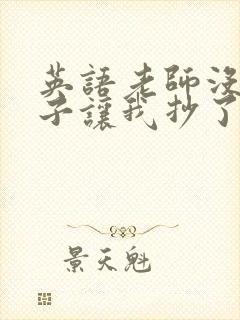 英語老師沒
子讓我抄了
景天魁